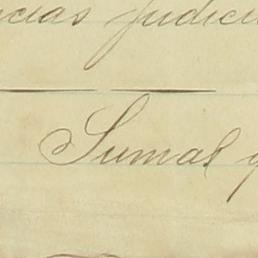 ncias Judici
Sumas q